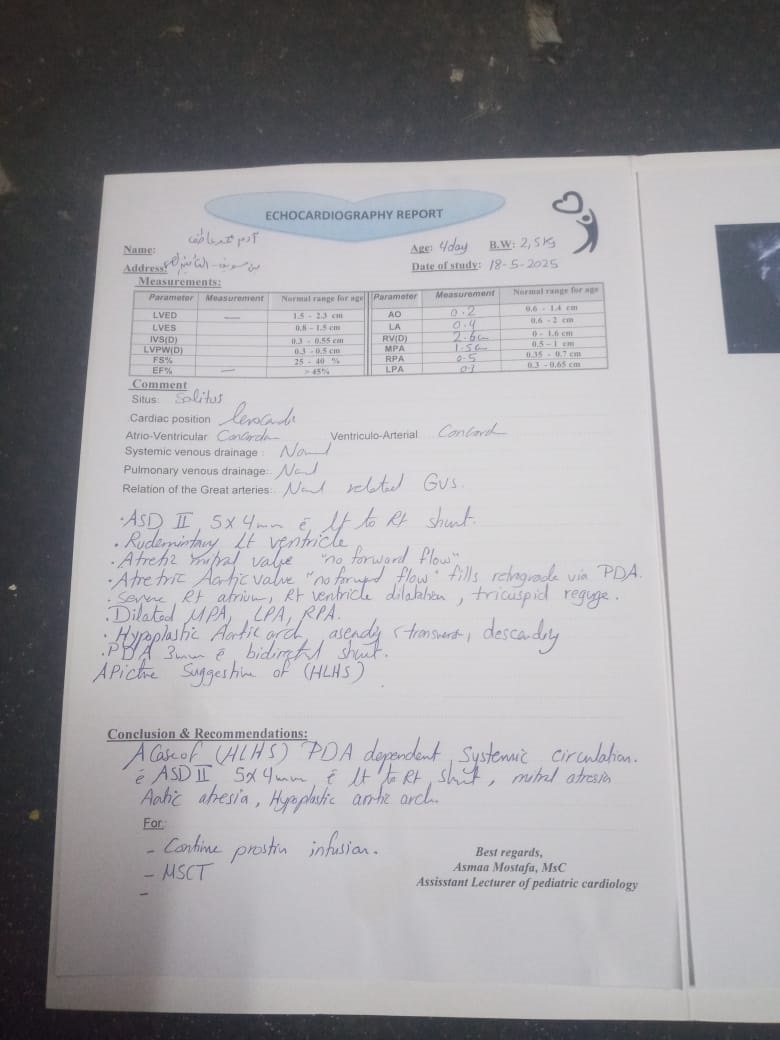 ECHOCARDIOGRAPHY REPORT
Name: آدم محمد عاطف
Age: 4day B.W: 2,5 KG
Address: بني سويف -
Date of study: 18-5-2025
Measurements:
Parameter Measurement Normal range for age Parameter Measurement Normal range for age
LVED — 1.5 - 2.3 cm AO 0.2 0.6 - 1.4 cm
LVES 0.8 - 1.5 cm LA 0.4 0.6 - 2 cm
IVS(D) 0.3 - 0.55 cm RV(D) 2.6cm 0 - 1.6 cm
LVPW(D) 0.3 - 0.5 cm MPA 1.5cm 0.5 - 1 cm
FS% 25 - 40 % RPA 0.5 0.35 - 0.7 cm
EF% — > 45% LPA 0.3 - 0.65 cm
Comment
Situs: Solitus
Cardiac position levocardi
Atrio-Ventricular Concorda Ventriculo-Arterial Concord
Systemic venous drainage : Normal
Pulmonary venous drainage:. Nal
Relation of the Great arteries:. Nal related GVS.
· ASD II, 5 x 4mm c̄ lt to Rt shunt.
· Rudemintary Lt ventricle
· Atretic mitral valve "no forward flow"
· Atretric Aortic valve "no forward flow" fills retrograde via PDA.
· Severe Rt atrium, Rt ventricle dilatation, tricuspid regurge.
· Dilated MPA, LPA, RPA.
· Hypoplastic Aortic arch, asending, transverse, descending
· PDA 3mm c̄ bidirectal shunt.
A Pictire suggestive of (HLHS)
Conclusion & Recommendations:
A Case of (HLHS) PDA dependent Systemic circulation.
c̄ ASD II 5x4mm c̄ lt to Rt shunt, mitral atresia
Aortic atresia, Hypoplastic aortic arch.
For:
- Contine prostin infusion.
- MSCT
-
Best regards,
Asmaa Mostafa, MsC
Assisstant Lecturer of pediatric cardiology